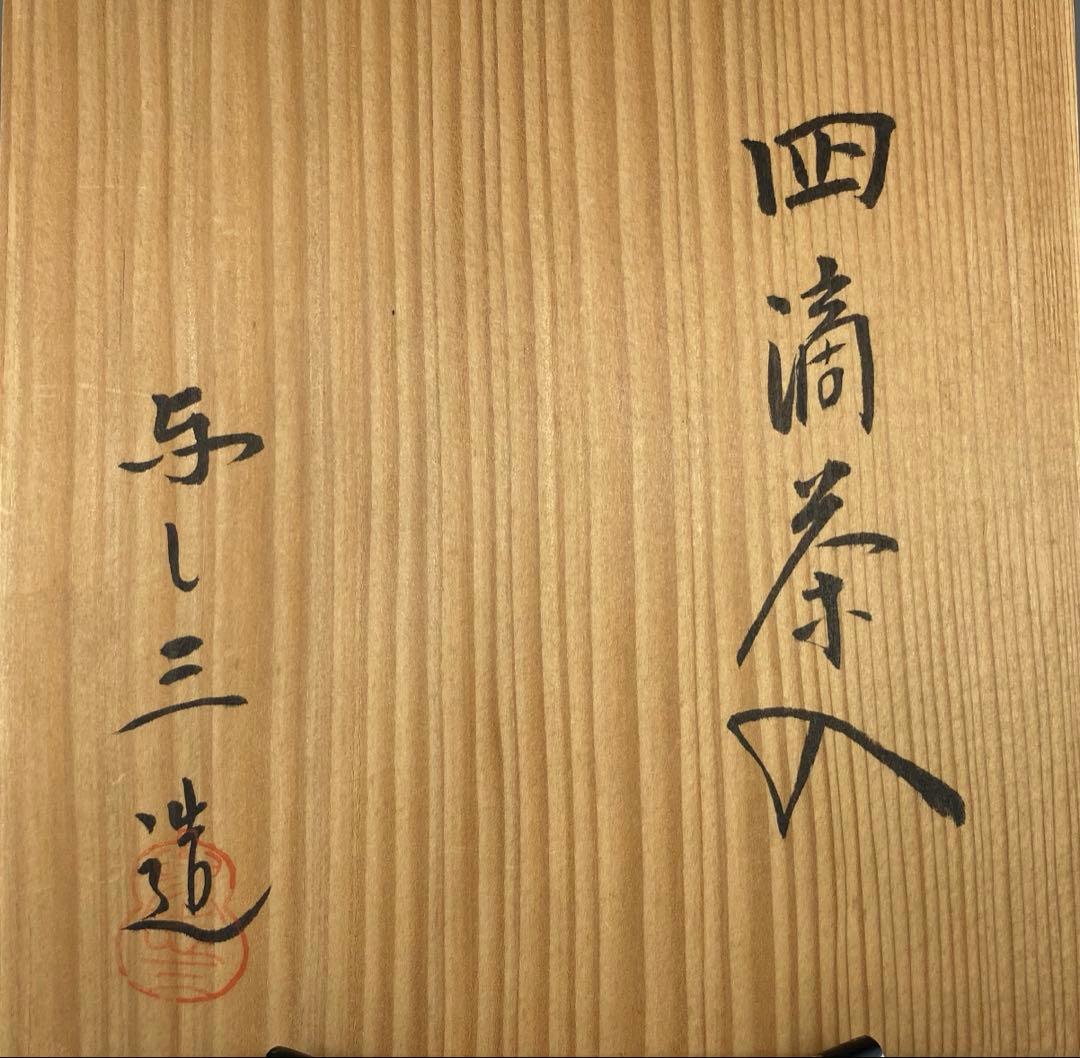 四滴茶入
与し三造